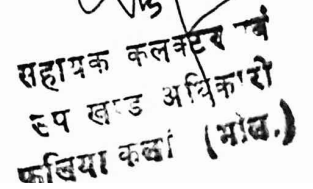 सहायक कलक्टर एवं
उप खण्ड अधिकारी
फुलिया कलां (भील.)